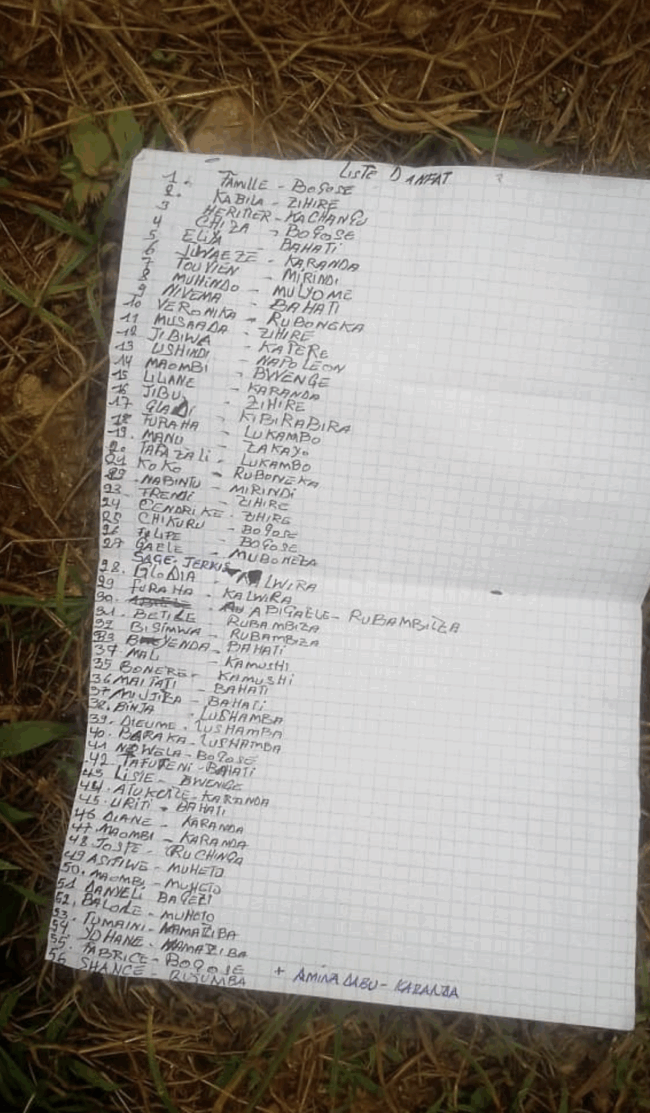 LISTE D'ANFAT
1. FAMILLE - BOGOSE
2. KABILA - ZIHIRE
3 HERITIER - KACHANGU
4 CHIZA - BOGOSE
5 ELIYA - BAHATI
6 JUWAEZE - KARANDA
7 TOUVIEN - MIRINDI
8 MUHINDO - MULYOME
9 NIVEMA - BAHATI
10 VERONIKA - RUBONGKA
11 MUSAADA - ZIHIRE
12 JIBIWA - KAPERE
13 USHINDI - NAPOLEON
14 MAOMBI - BWENGE
15 LILIANE - KARANDA
16 JIBU - ZIHIRE
17. GLADI - KIBIRABIRA
18 FURAHA - LUKAMBO
19. MANU - ZAKAYO
20 TAFAZALI - LUKAMBO
21 KOKO - RUBONEKA
22 NABINTU - MIRINDI
23 TRENDI - ZIHIRE
24 CENDRIKE - ZIHIRE
25 CHIKURU - BOGOSE
26 FELIPE - BOGOSE
27 GAELE - MUBONEZA
SAGE. JERKIS
28. GLODIA - KALWIRA
29 FURAHA - KALWIRA
30. ABIGAELE - RUBAMBIZA
31. BETILE - RUBAMBIZA
32 BISIMWA - RUBAMBIZA
33 YENDA - BAHATI
34 MALI - KAMUSHI
35 BONERE - KAMUSHI
36 MAITATI - BAHATI
37 MUJIBA - BAHATI
38. BINJA - LUSHAMBA
39. DIEUME - LUSHAMBA
40. BARAKA - LUSHAMBA
41 NEWELA - BOGOSE
42. TAFUTENI - BAHATI
43 LISIE - BWENGE
44. ATUKUZE - KARANDA
45. URITI - BAHATI
46 DIANE - KARANDA
47 MAOMBI - KARANDA
48 JOSTE - RUCHINGA
49 ASIFIWE - MUHETO
50. MAOMBI - MUHETO
51 DANYELI BAGEZI
52. BALOLE - MUHETO
53. TUMAINI - NAMAZIBA
54. YOHANE - NAMAZIBA
55. FABRICE - BOGOSE
56 SHANCE - RUSUMBA + AMINA DABU - KARANDA